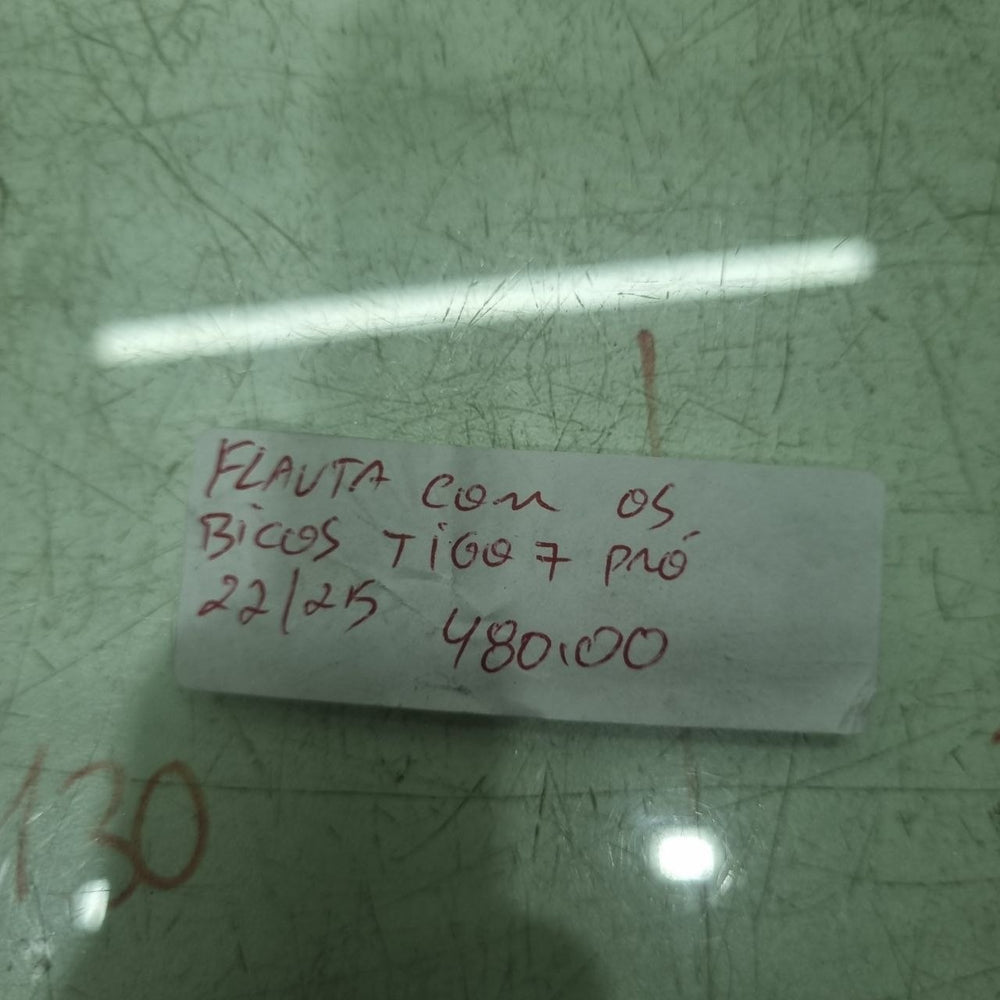 FLAUTA COM OS
BICOS TIGO 7 PRÓ
22/25 480,00
130